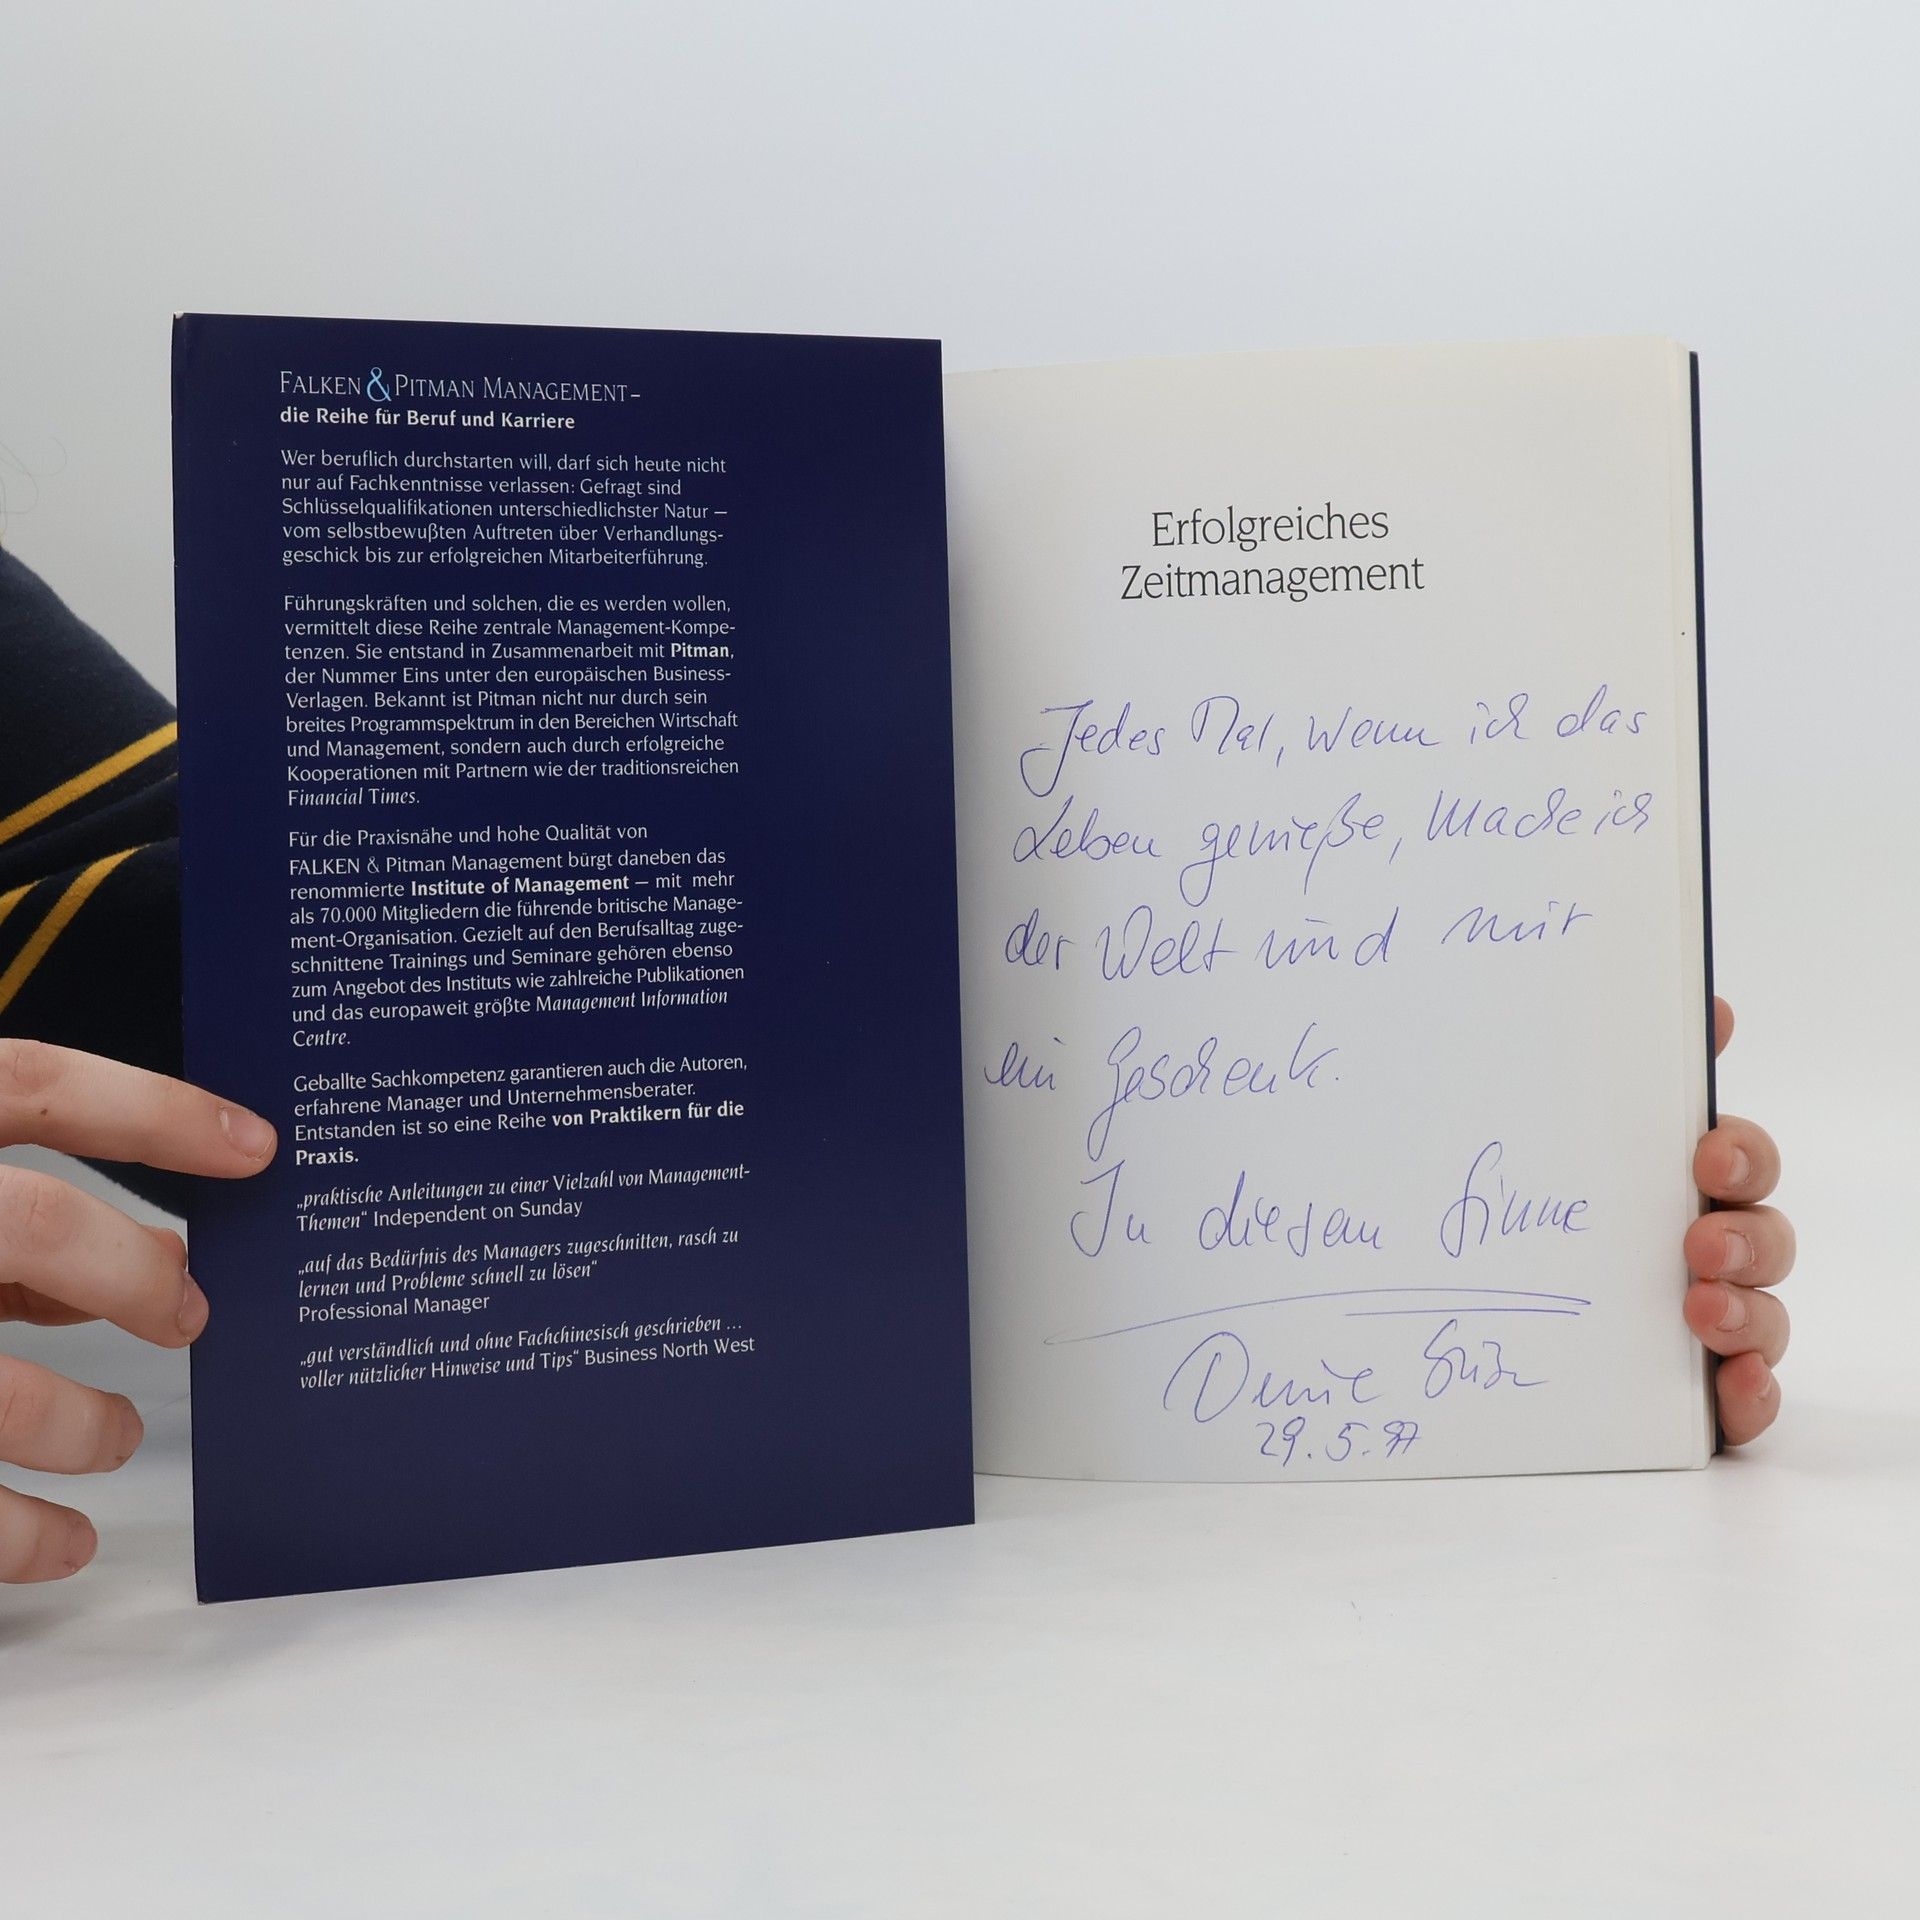 FALKEN & PITMAN MANAGEMENT –
die Reihe für Beruf und Karriere
Wer beruflich durchstarten will, darf sich heute nicht
nur auf Fachkenntnisse verlassen: Gefragt sind
Schlüsselqualifikationen unterschiedlichster Natur –
vom selbstbewußten Auftreten über Verhandlungs-
geschick bis zur erfolgreichen Mitarbeiterführung.
Führungskräften und solchen, die es werden wollen,
vermittelt diese Reihe zentrale Management-Kompe-
tenzen. Sie entstand in Zusammenarbeit mit Pitman,
der Nummer Eins unter den europäischen Business-
Verlagen. Bekannt ist Pitman nicht nur durch sein
breites Programmspektrum in den Bereichen Wirtschaft
und Management, sondern auch durch erfolgreiche
Kooperationen mit Partnern wie der traditionsreichen
Financial Times.
Für die Praxisnähe und hohe Qualität von
FALKEN & Pitman Management bürgt daneben das
renommierte Institute of Management – mit mehr
als 70.000 Mitgliedern die führende britische Manage-
ment-Organisation. Gezielt auf den Berufsalltag zuge-
schnittene Trainings und Seminare gehören ebenso
zum Angebot des Instituts wie zahlreiche Publikationen
und das europaweit größte Management Information
Centre.
Geballte Sachkompetenz garantieren auch die Autoren,
erfahrene Manager und Unternehmensberater.
Entstanden ist so eine Reihe von Praktikern für die
Praxis.
„praktische Anleitungen zu einer Vielzahl von Management-
Themen“ Independent on Sunday
„auf das Bedürfnis des Managers zugeschnitten, rasch zu
lernen und Probleme schnell zu lösen“
Professional Manager
„gut verständlich und ohne Fachchinesisch geschrieben ...
voller nützlicher Hinweise und Tips“ Business North West
Erfolgreiches
Zeitmanagement
Jedes Mal, wenn ich das
Leben genieße, mache ich
der Welt und mir
ein Geschenk.
In diesem Sinne
29.5.97